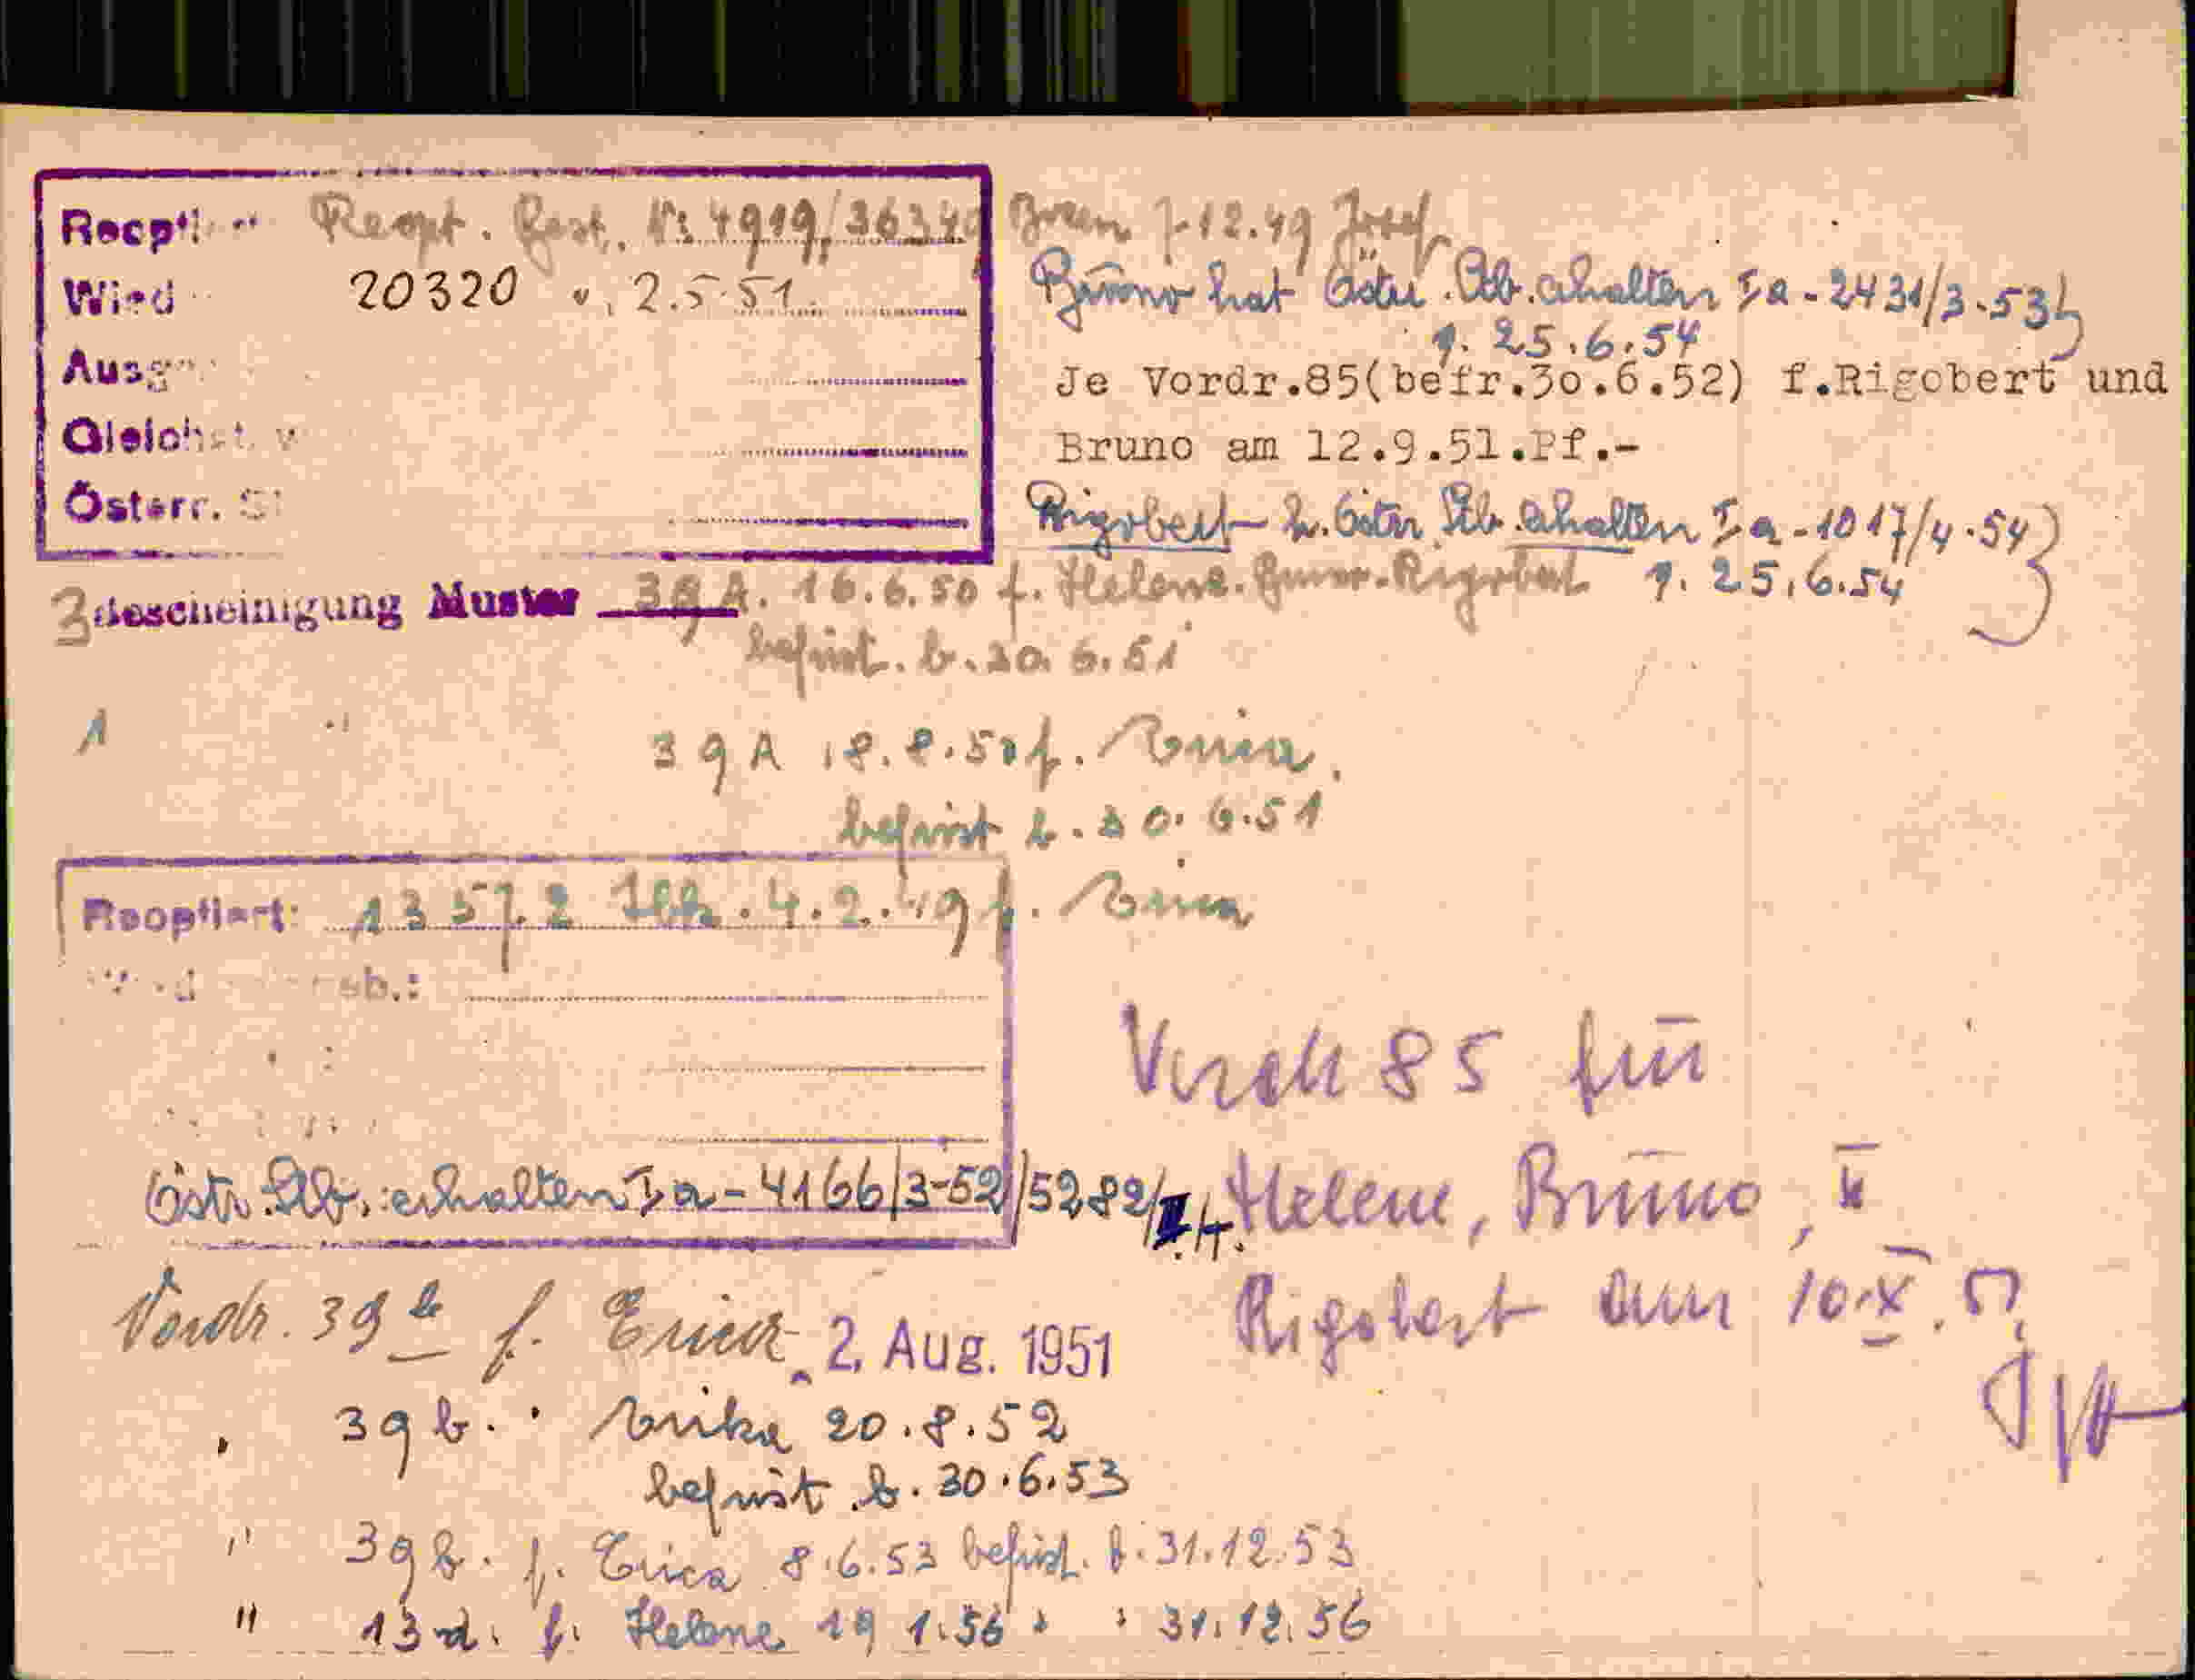 Reopt. Best. Nr 4919/36349 Bozen 7.12.49 Josef
Wied 20320 v. 2.5.51.
Ausg
Gleichst. v
Österr. St
Bruno hat Östr. Stb. erhalten Ia-2431/3.53
25.6.54
Je Vordr.85(befr.30.6.52) f.Rigobert und
Bruno am 12.9.51.Pf.-
Rigobert h. östr. Stb. erhalten Ia-1017/4.54
25.6.54
3 bescheinigung Muster 39A. 16.6.50 f. Helene. Bruno. Rigobert
befrist. b. 30.6.51
1 " 39A 18.8.50 f. Erica.
befrist b. 30.6.51
Reoptiert: 13572 4.2.49 f. Erica
Östr. Stb. erhalten Ia-4166/3-52//5282/
Vordr 85 für
Helene, Bruno, u
Rigobert am 10.X.51
Vordr. 39b f. Erica 2. Aug. 1951
" 39b. " Erika 20.8.52
befrist. b. 30.6.53
" 39b. f. Erica 8.6.53 befrist. b. 31.12.53
" 13d. f. Helene 19 1.56 " " 31.12.56